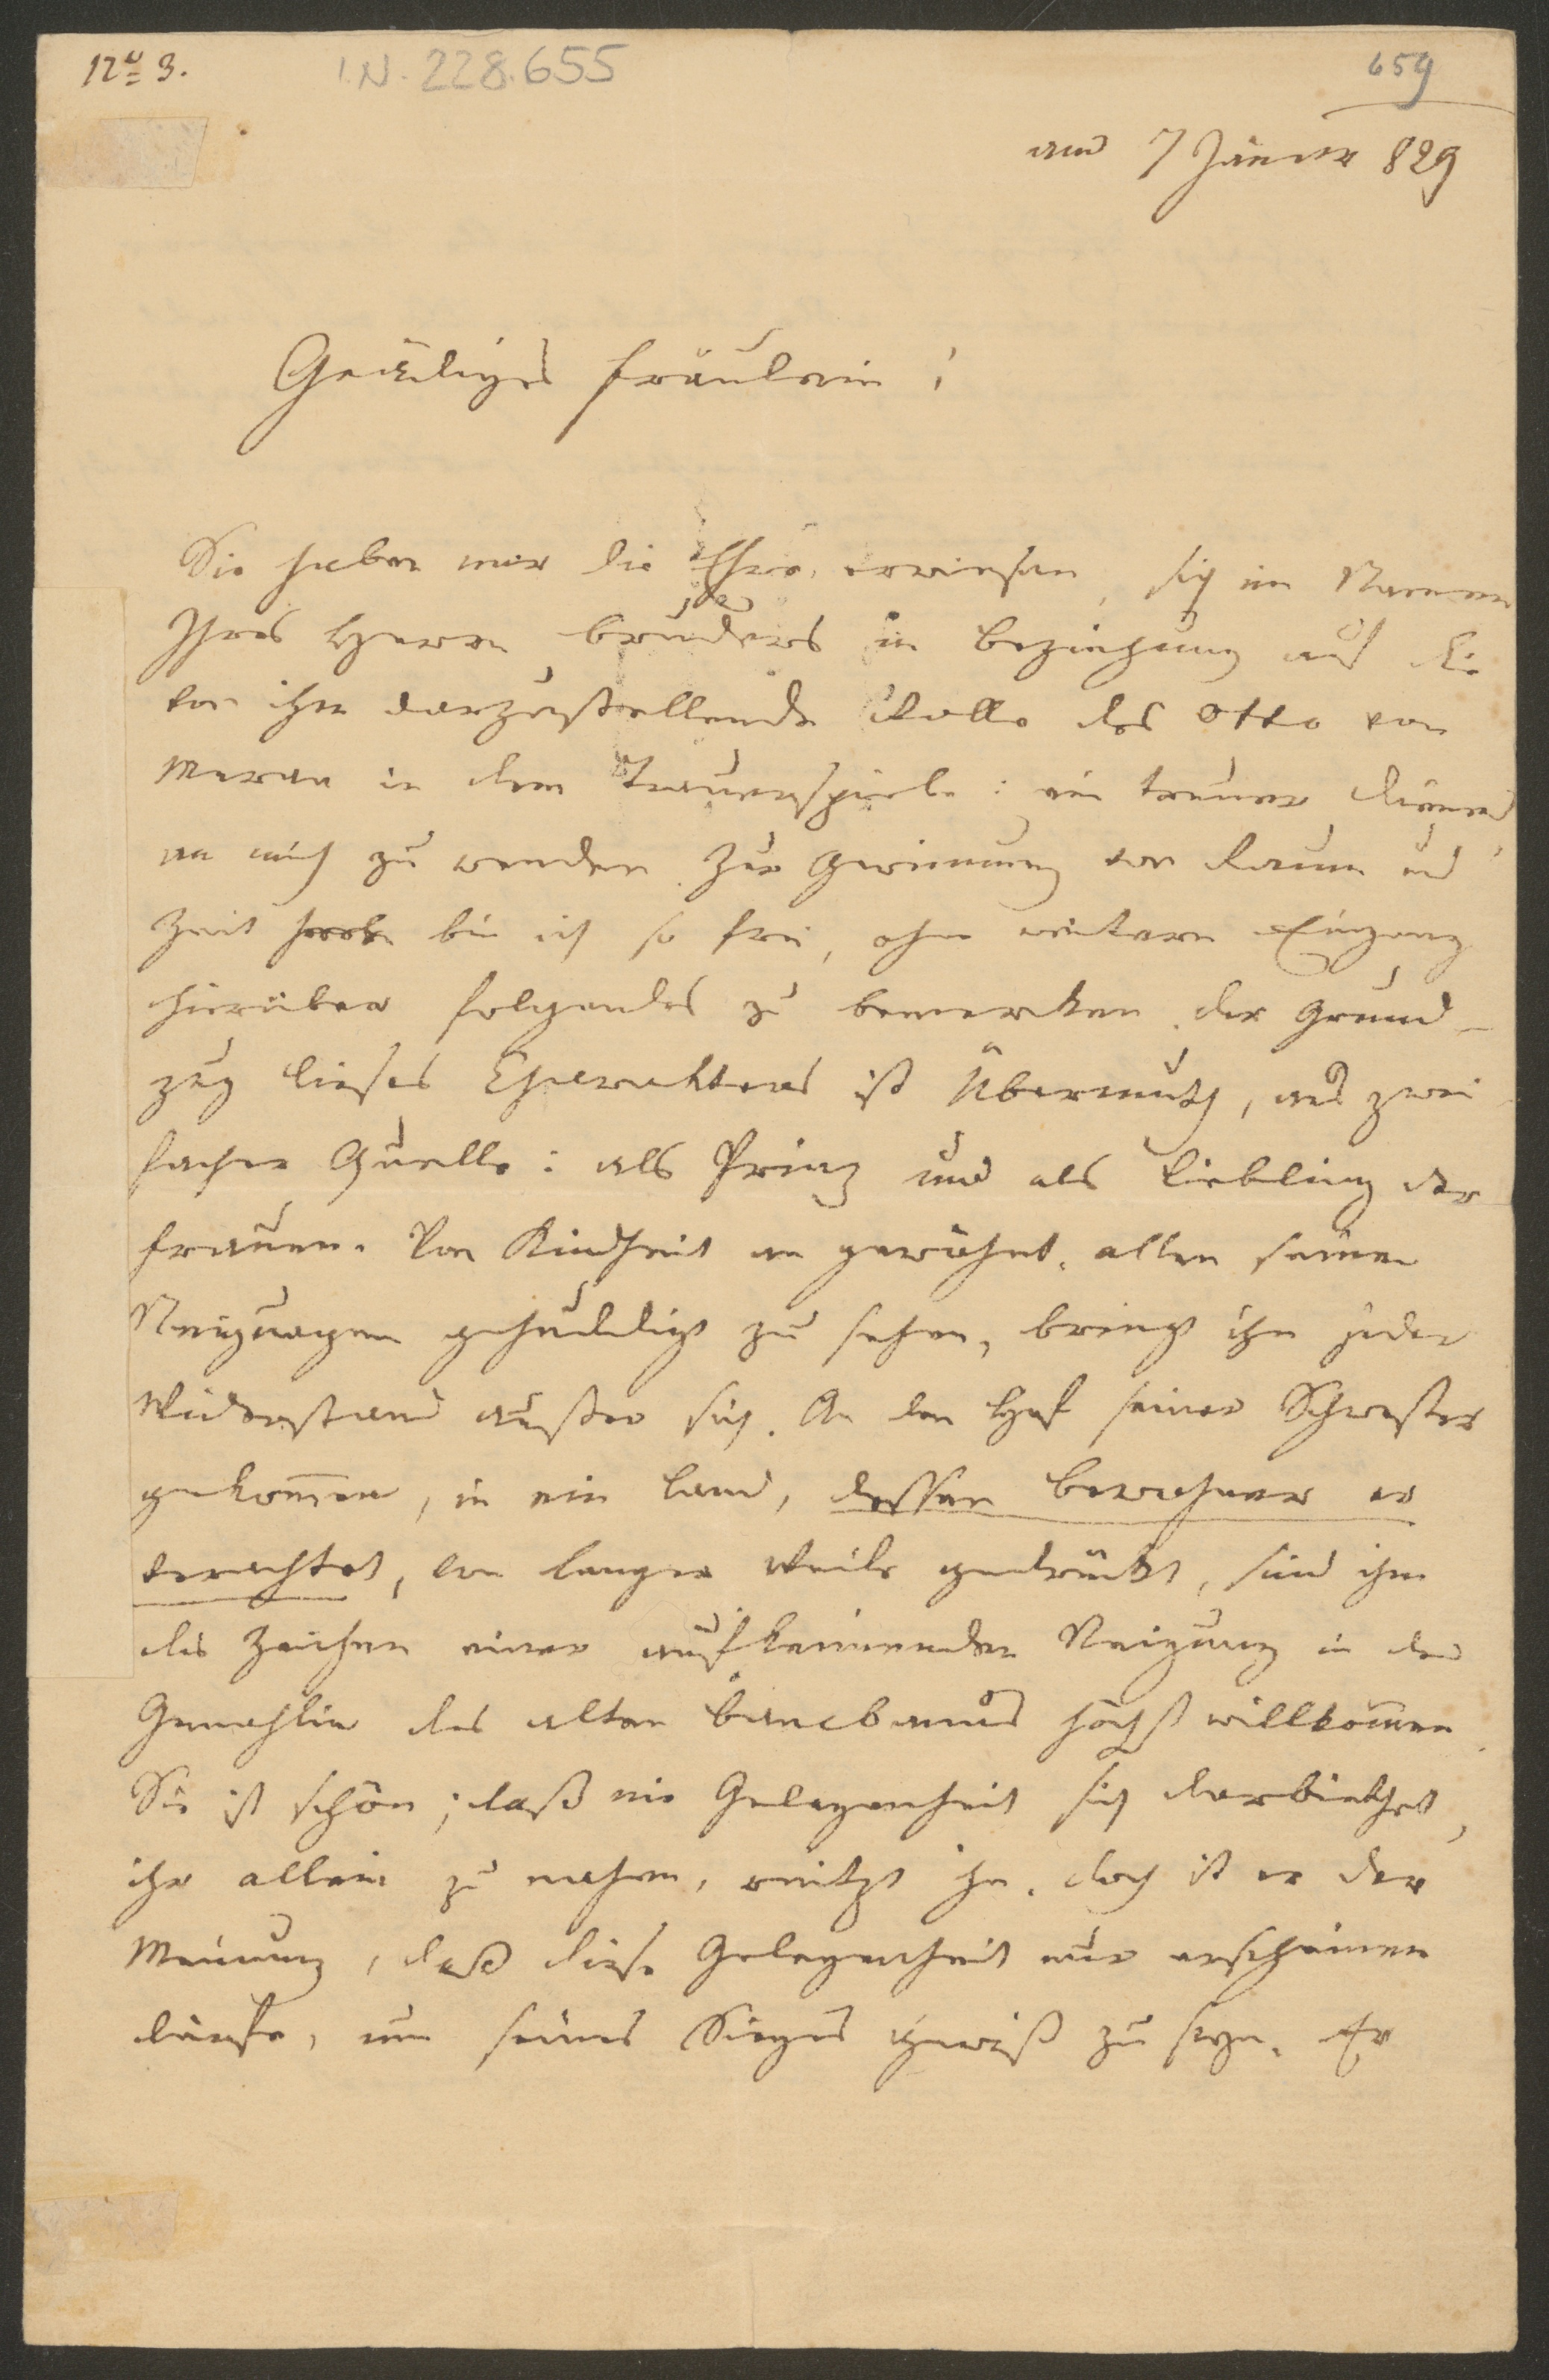 12<sup>o</sup> 3.
I.N. 228.655
659
am 7 Jänner 829
Gnädiges Fräulein!
Sie haben mir die Ehre erwiesen, sich im Namen
Ihres Herrn Bruders in Beziehung auf die
von ihm darzustellende Rolle des Otto von
Meran in dem Trauerspiele: ein treuer Diener
an mich zu wenden. Zur Gewinnung von Raum und
Zeit bin ich so frei, ohne weitern Eingang
hierüber folgendes zu bemerken. der Grund-
zug dieses Charakters ist Übermuth, aus zwei
facher Quelle: als Prinz und als Liebling der
Frauen. Von Kindheit an gewöhnt, allen seinen
Neigungen gehuldigt zu sehen, bringt ihn jeder
Widerstand außer sich. An den Hof seiner Schwester
gekommen, in ein Land, dessen Bewohner er
verachtet, von langer Weile gedrückt, sind ihm
die Zeichen einer aufkeimenden Neigung in der
Gemahlin des alten Bancbanus höchst willkommen.
Sie ist schön; daß nie Gelegenheit sich darbiethet,
ihr allein zu nahen, reitzt ihn. doch ist er der
Meinung, daß diese Gelegenheit nur erscheinen
dürfe, um seines Sieges gewiß zu seyn. Er